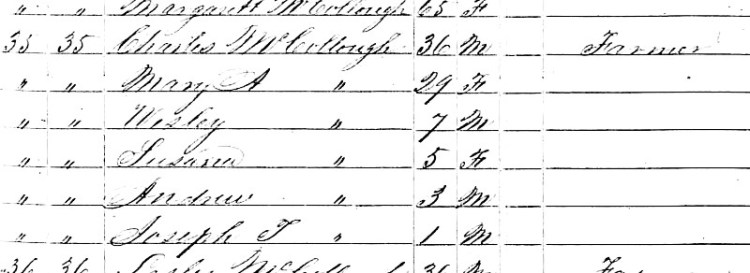 " " Margarett McCollough 65 F
35 35 Charles McCollough 36 M Farmer
" " Mary A " 29 F
" " Wesley " 7 M
" " Susana " 5 F
" " Andrew " 3 M
" " Joseph T " 1 M
36 36